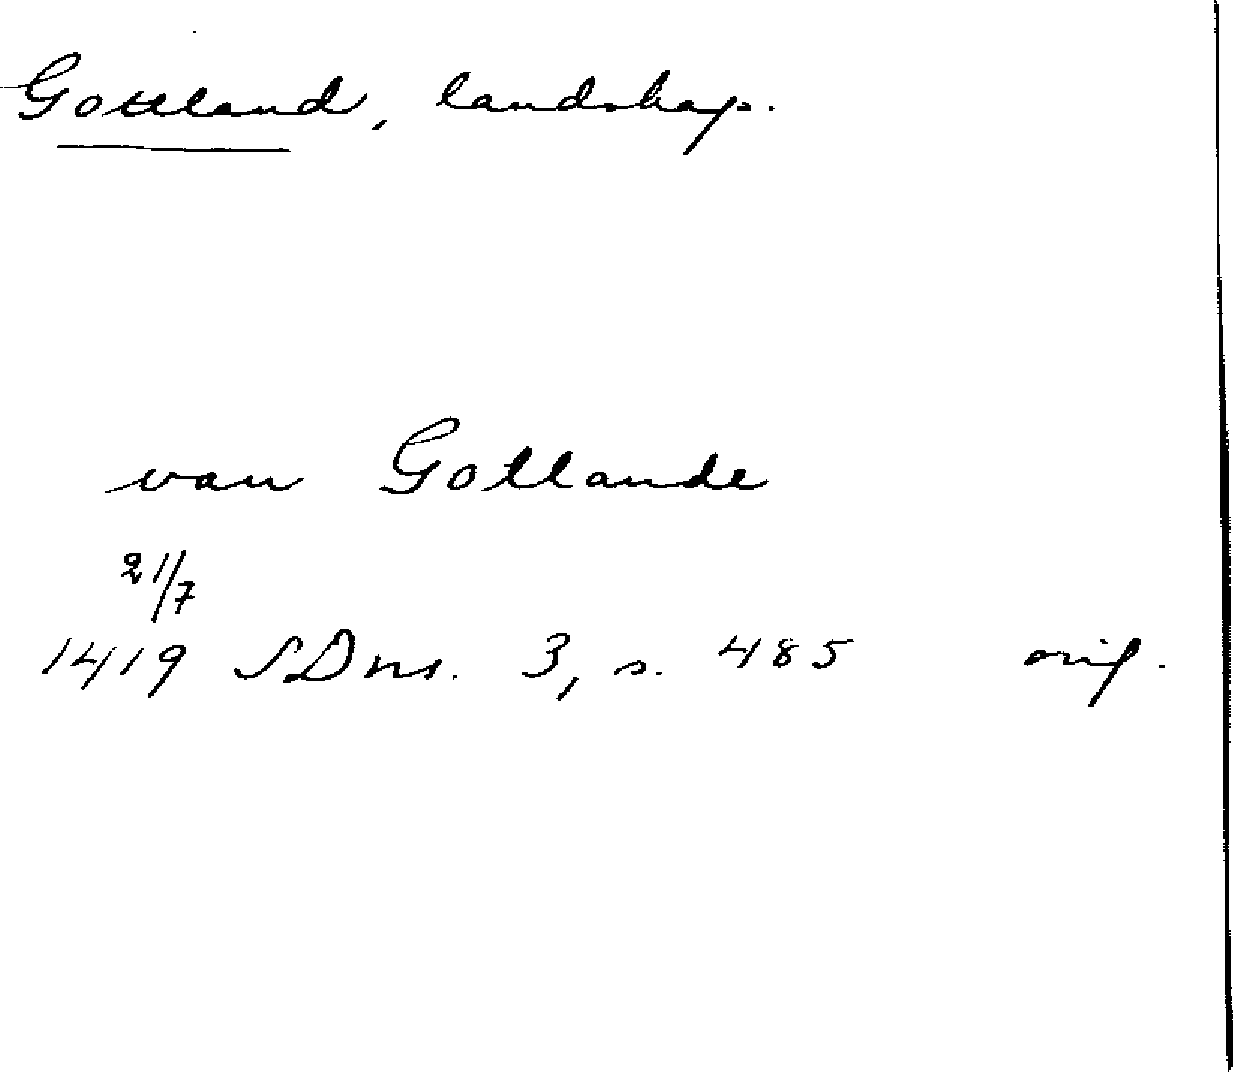 Gottland, landskap.
van Gotlande
21/7
1419 SDns. 3, s. 485 orig.